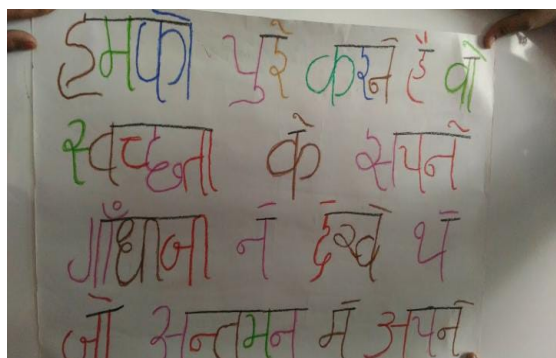 हमको पुरे करने हैं वो
स्वच्छता के सपने
गाँधीजी ने देखे थे
जो सन्तमन में अपने